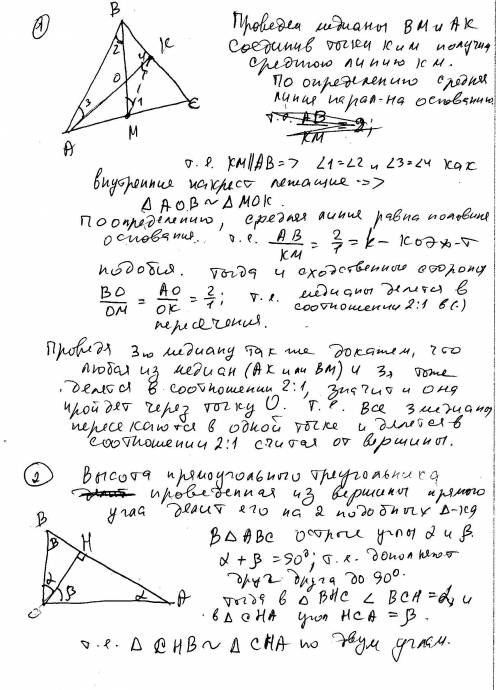 1
B
K
C
A
M
O
2
3
4
1
Проведем медианы BM и AK
Соединив точки K и M получим
среднюю линию KM.
По определению средняя
линия парал-на основанию
т.е. AB/KM = 2;
т.е. KM∥AB => ∠1=∠2 и ∠3=∠4 как
внутренние накрест лежащие =>
△AOB ~ △MOK.
По определению, средняя линия равна половине
основания. т.е. AB/KM = 2/1 = k – коэф-т
подобия. Тогда и сходственные стороны
BO/OM = AO/OK = 2/1; т.е. медианы делятся в
соотношении 2:1 в (·)
пересечения.
Проведя 3ю медиану так же докажем, что
любая из медиан (AK или BM) и 3я тоже
делятся в соотношении 2:1, значит и она
пройдет через точку O. т.е. Все 3 медианы
пересекаются в одной точке и делятся в
соотношении 2:1 считая от вершины.
2
Высота прямоугольного треугольника
проведенная из вершины прямого
угла делит его на 2 подобных △-ка
B
β
H
α
β
α
A
C
В △ABC острые углы α и β.
α + β = 90°; т.е. дополняют
друг друга до 90°.
Тогда в △BHC ∠BCH = α, и
в △CHA угол HCA = β.
т.е. △CHB ~ △CHA по двум углам.